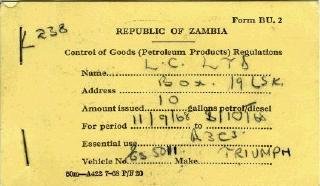 K 238
Form BU. 2
REPUBLIC OF ZAMBIA
Control of Goods (Petroleum Products) Regulations
Name L.C. LTD
Address Box. 19 LSK.
Amount issued 10 gallons petrol/diesel
For period 11/9/68 to 8/10/68
Essential use
Vehicle No. Make TRIUMPH
50m—A422 7-68 P/F 20